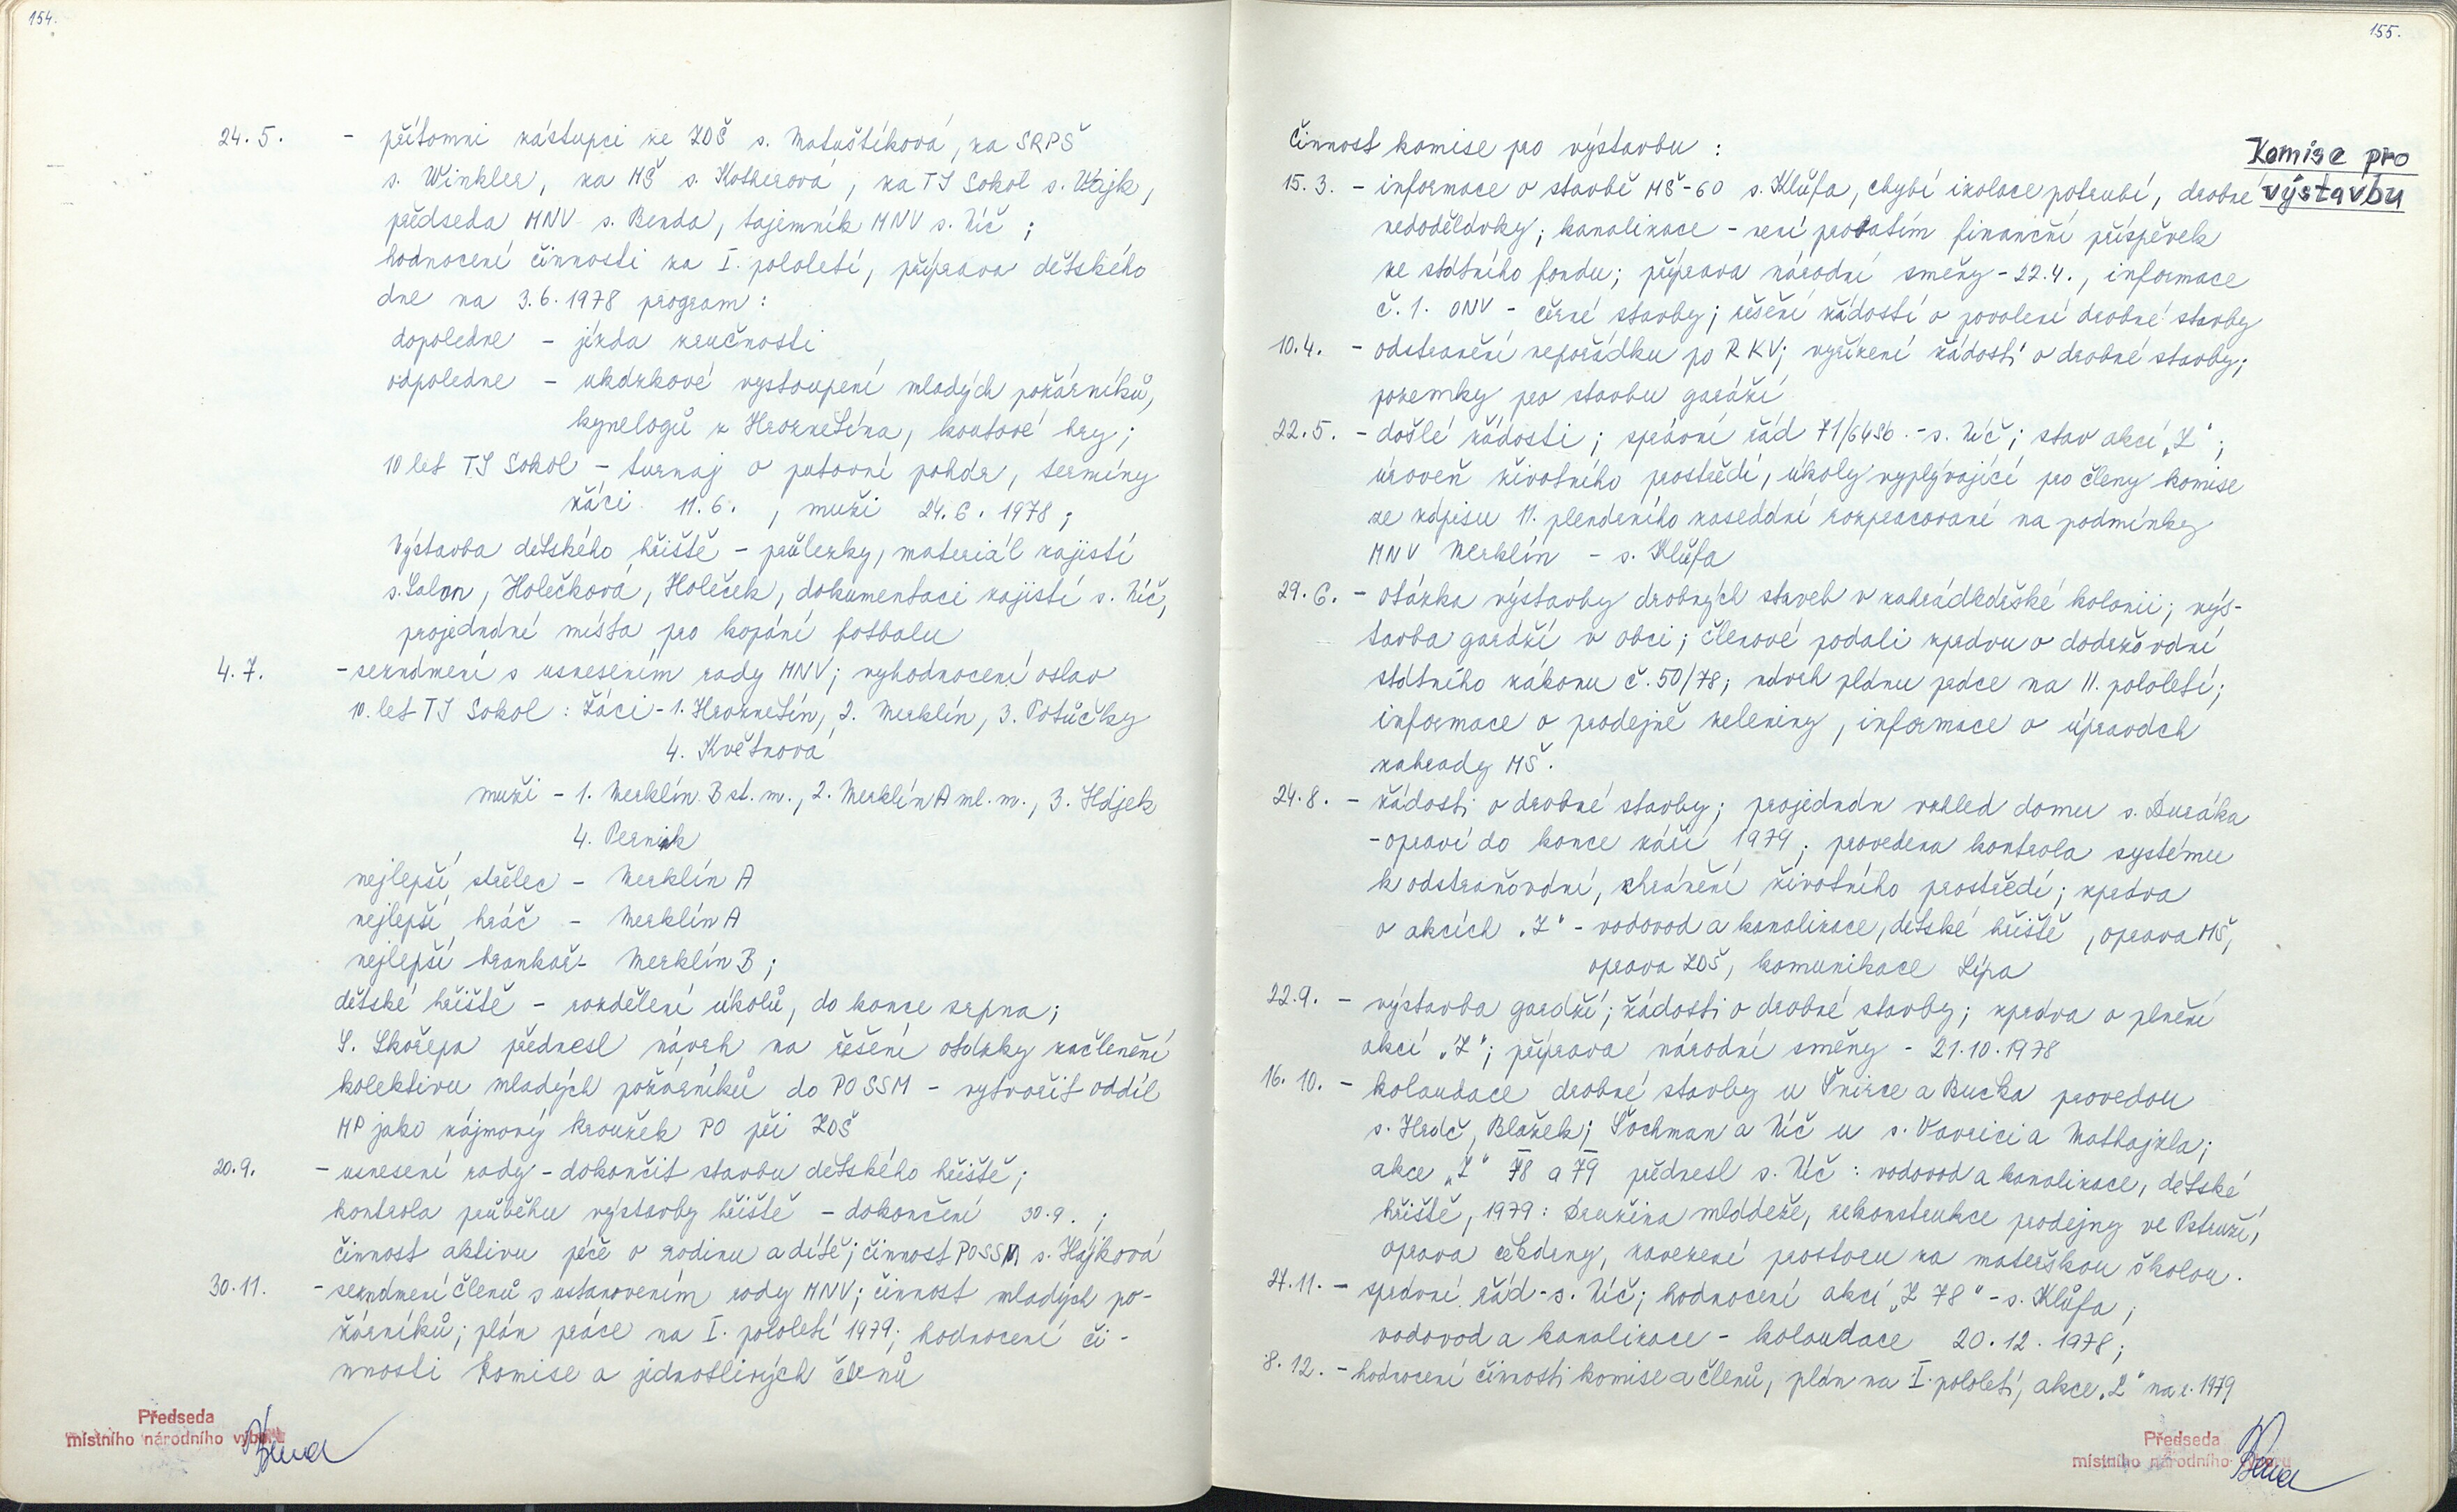 154.
24.5. - přítomni zástupci ze ZDŠ s. Matuštíková, za SRPŠ
s. Winkler, za MŠ s. Kotherová, za TJ Sokol s. Wajk,
předseda MNV s. Benda, tajemník MNV s. Níč ;
hodnocení činnosti za I. pololetí, příprava dětského
dne na 3.6.1978 program :
dopoledne - jízda zručnosti
odpoledne - ukázkové vystoupení mladých požárníků,
kynelogů z Hroznětína, koutové hry ;
10 let TJ Sokol - turnaj o putovní pohár, termíny
žáci 11.6. , muži 24.6. 1978 ;
Výstavba dětského hřiště - průlezky, materiál zajistí
s. Salon, Holečková, Holeček, dokumentaci zajistí s. Níč,
projednání místa pro kopání fotbalu
4.7. - seznámení s usnesením rady MNV; vyhodnocení oslav
10. let TJ Sokol : Žáci - 1. Hroznetín, 2. Merklín, 3. Potůčky
4. Květnová
muži - 1. Merklín B st. m., 2. Merklín A ml. m., 3. Hájek
4. Pernink
nejlepší střelec - Merklín A
nejlepší hráč - Merklín A
nejlepší brankař - Merklín B ;
dětské hřiště - rozdělení úkolů, do konce srpna ;
S. Skořepa přednesl návrh na řešení otázky začlenění
kolektivu mladých požárníků do PO SSM - vytvořit oddíl
MP jako zájmový kroužek PO při ZDŠ
20.9. - usnesení rady - dokončit stavbu dětského hřiště ;
kontrola průběhu výstavby hřiště - dokončení 30.9. ;
činnost aktivu péče o rodinu a dítě ; činnost POSSM s. Hájková
30.11. - seznámení členů s ustanovením rady MNV; činnost mladých po-
žárníků ; plán práce na I. pololetí 1979; hodnocení či-
nnosti komise a jednotlivých členů
Předseda
místního národního výboru
155.
Komise pro
výstavbu
Činnost komise pro výstavbu :
15.3. - informace o stavbě MŠ-60 s. Klůfa, chybí izolace potrubí, drobné
nedodělávky; kanalizace - není prozatím finanční příspěvek
ze státního fondu; příprava národní směny - 22.4., informace
č.1. ONV - černé stavby; řešení žádostí o povolení drobné stavby
10.4. - odstranění nepořádku po RKV; vyřízení žádostí o drobné stavby;
pozemky pro stavbu garáží
22.5. - došlé žádosti ; správní řád 71/67 Sb. - s. Níč ; stav akcí „Z" ;
úroveň životního prostředí, úkoly vyplývající pro členy komise
ze zápisu 11. plenárního zasedání rozpracované na podmínky
MNV Merklín - s. Klůfa
29.6. - otázka výstavby drobných staveb v zahrádkářské kolonii; výs-
tavba garáží v obci; členové podali zprávu o dodržování
státního zákonu č. 50/78; návrh plánu práce na II. pololetí;
informace o prodejně zeleniny, informace o úpravách
zahrady MŠ.
24.8. - žádosti o drobné stavby; projednán vzhled domu s. Ďuráka
- opraví do konce září 1979 ; provedena kontrola systému
k odstraňování, chránění životního prostředí; zpráva
o akcích „Z" - vodovod a kanalizace, dětské hřiště , oprava MŠ,
oprava ZDŠ, komunikace Lípa
22.9. - výstavba garáží; žádosti o drobné stavby; zpráva o plnění
akcí „Z"; příprava národní směny - 21.10.1978
16.10. - kolaudace drobné stavby u Šnirce a Bucka provedou
s. Hráč, Blažek; Šochman a Níč u s. Vavrici a Mathajzla;
akce „Z" 78 a 79 přednesl s. Níč : vodovod a kanalizace, dětské
hřiště, 1979: družina mládeže, rekonstrukce prodejny ve Pstruží,
oprava čekárny, zavezení prostoru za mateřskou školou.
27.11. - správní řád - s. Níč ; hodnocení akcí „Z 78" - s. Klůfa ;
vodovod a kanalizace - kolaudace 20.12.1978 ;
8.12. - hodnocení činnosti komise a členů, plán na I. pololetí, akce „Z" na r. 1979
Předseda
místního národního výboru